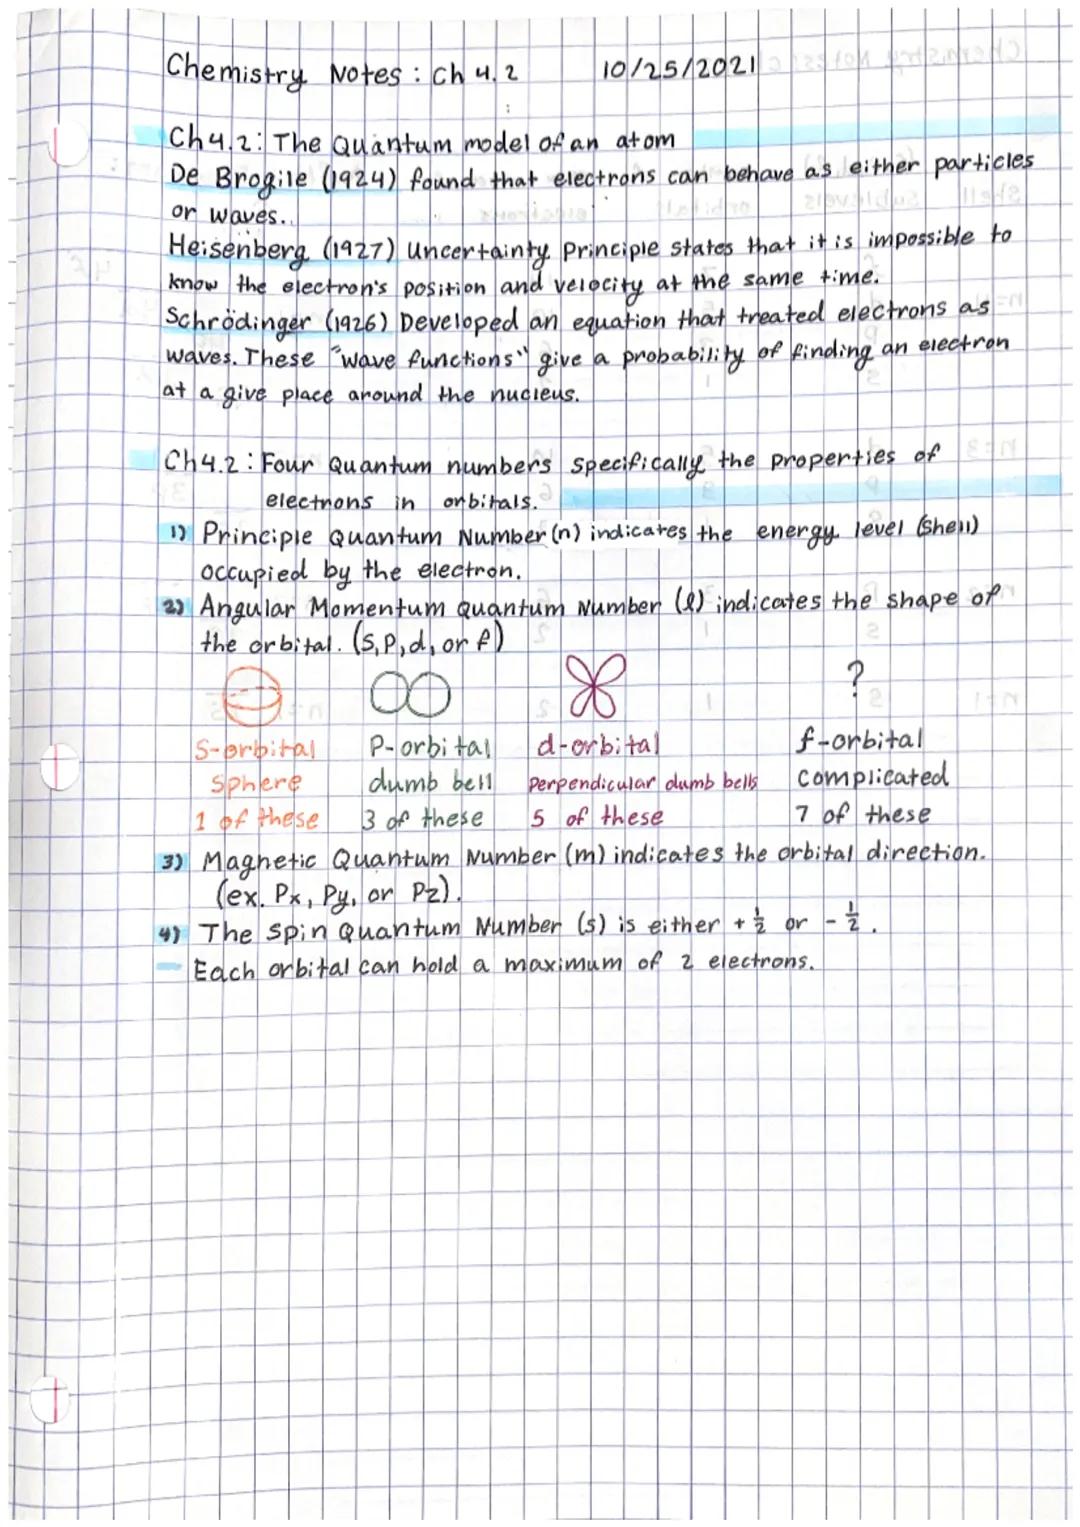 Chemistry Notes: Ch 4.2 10/25/2021
Ch4.2: The Quantum model of an atom
De Brogile (1924) found that electrons can behave as either particles
or waves.
Heisenberg (1927) Uncertainty Principle states that it is impossible to
know the electron's position and velocity at the same time.
Schrödinger (1926) Developed an equation that treated electrons as
waves. These "wave functions" give a probability of finding an electron
at a give place around the nucleus.
Ch4.2: Four Quantum numbers specifically the properties of
electrons in orbitals.
1) Principle Quantum Number (n) indicates the energy level (shell)
occupied by the electron.
2) Angular Momentum Quantum Number (l) indicates the shape of
the orbital. (S, P, d, or f)
?
S-orbital P-orbital d-orbital f-orbital
Sphere dumb bell Perpendicular dumb bells complicated
1 of these 3 of these 5 of these 7 of these
3) Magnetic Quantum Number (m) indicates the orbital direction.
(ex. Px, Py, or Pz).
4) The Spin Quantum Number (s) is either + 1/2 or - 1/2.
- Each orbital can hold a maximum of 2 electrons.